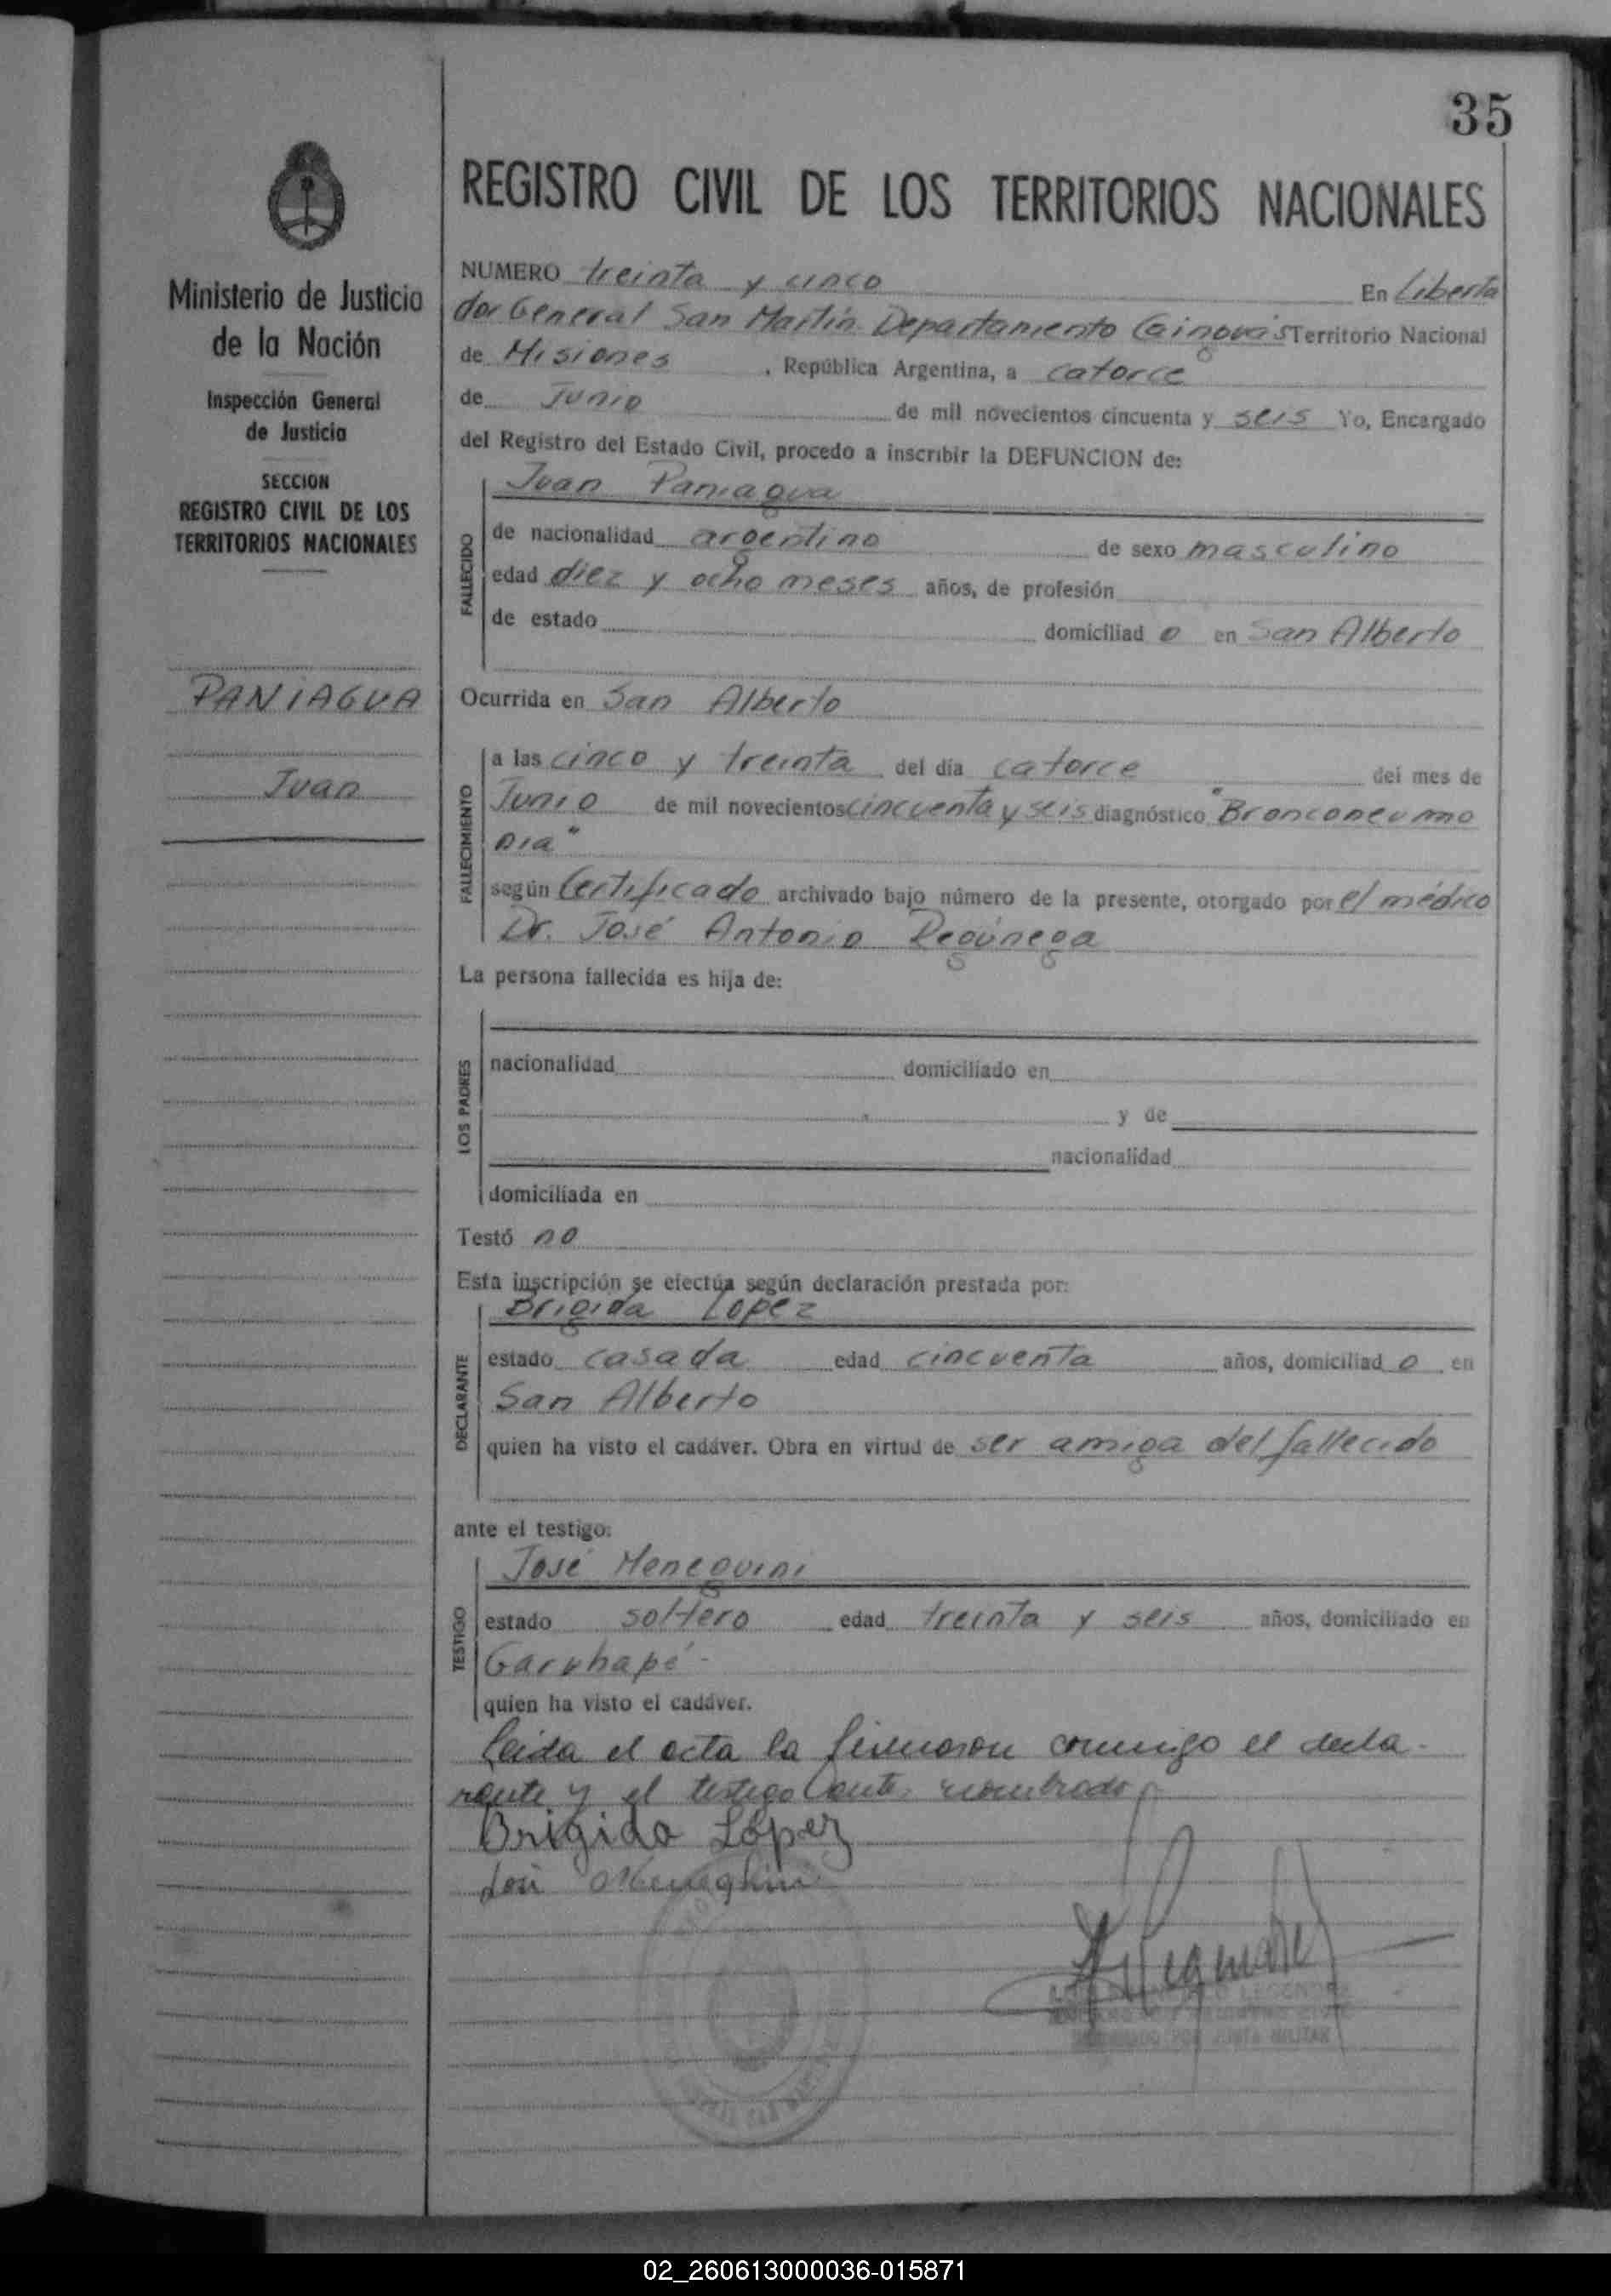 35
Ministerio de Justicia
de la Nación
Inspección General
de Justicia
SECCION
REGISTRO CIVIL DE LOS
TERRITORIOS NACIONALES
PANIAGUA
Juan
REGISTRO CIVIL DE LOS TERRITORIOS NACIONALES
NUMERO treinta y cinco En Liberta
dor General San Martín Departamento Cainguás Territorio Nacional
de Misiones, República Argentina, a catorce
de Junio de mil novecientos cincuenta y seis Yo, Encargado
del Registro del Estado Civil, procedo a inscribir la DEFUNCION de:
Juan Paniagua
FALLECIDO
de nacionalidad argentino de sexo masculino
edad diez y ocho meses años, de profesión
de estado domiciliad o en San Alberto
Ocurrida en San Alberto
FALLECIMIENTO
a las cinco y treinta del día catorce del mes de
Junio de mil novecientos cincuenta y seis diagnóstico "Bronconeumo
nia"
según Certificado archivado bajo número de la presente, otorgado por el médico
Dr. José Antonio Regúnega
La persona fallecida es hija de:
LOS PADRES
nacionalidad domiciliado en
y de
nacionalidad
domiciliada en
Testó no
Esta inscripción se efectúa según declaración prestada por:
Brigida Lopez
DECLARANTE
estado casada edad cincuenta años, domiciliad o en
San Alberto
quien ha visto el cadáver. Obra en virtud de ser amiga del fallecido
ante el testigo:
José Meneguini
TESTIGO
estado soltero edad treinta y seis años, domiciliado en
Garuhapé -
quien ha visto el cadáver.
Leida el acta la firmaron conmigo el decla-
rante y el testigo ante nombrado
Brigida López
José Meneghini
POR JUNTA MILITAR
02_260613000036-015871